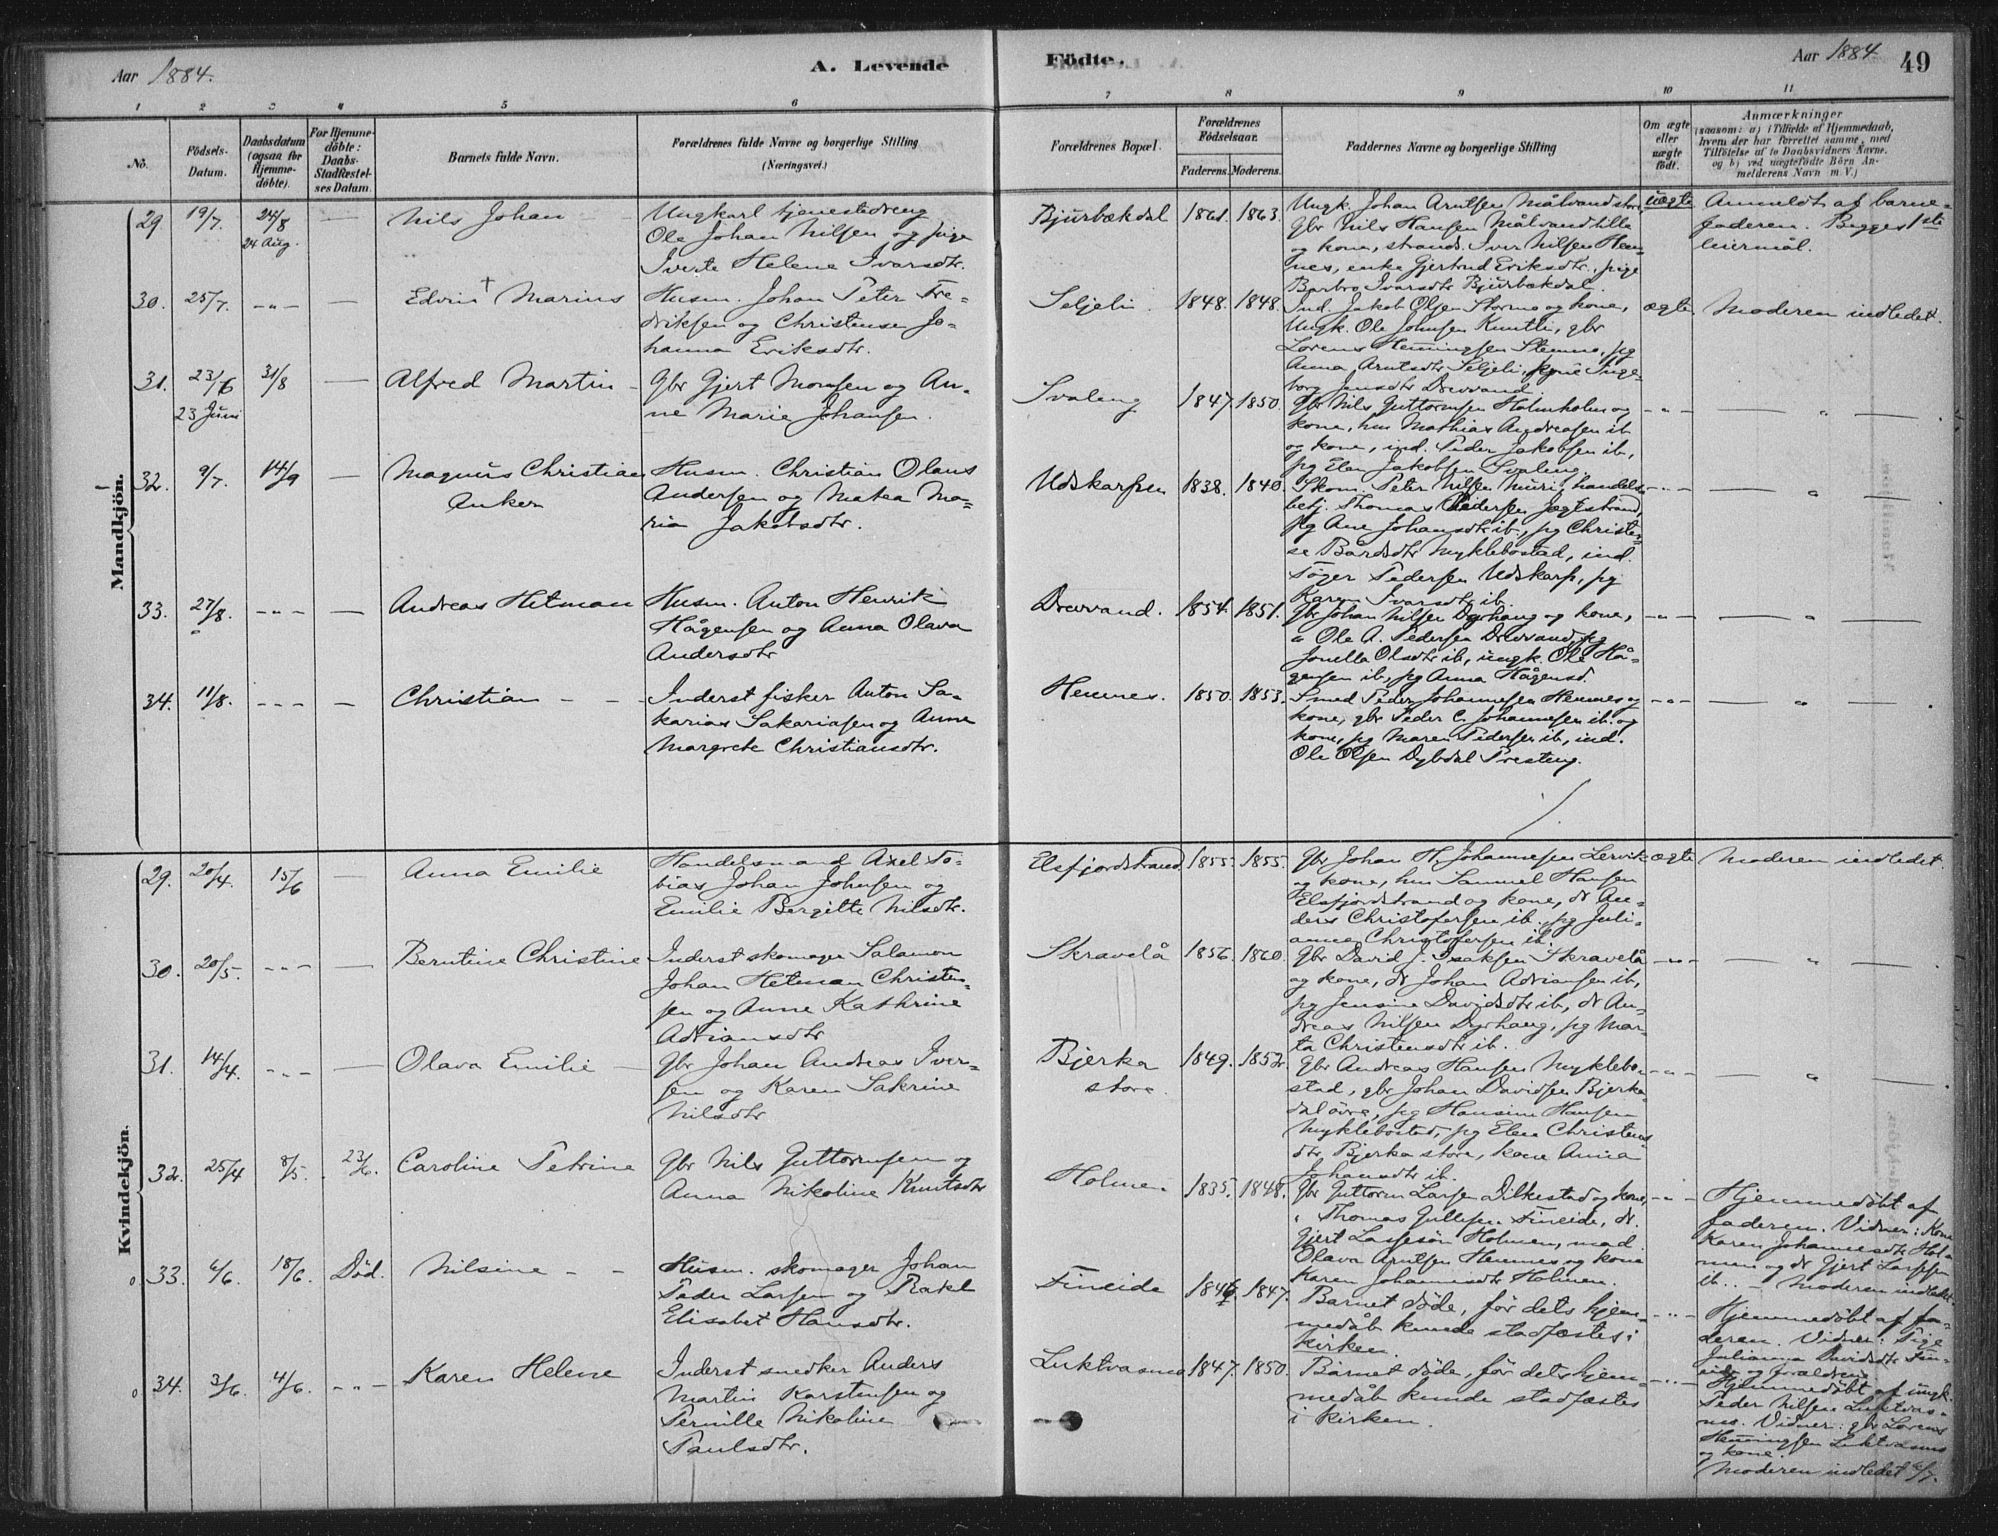 Aar 1884.
A. Levende
Födte.
Aar 1884
49
1 2 3 4 5 6 7 8 9 10 11
No.
Födsels-
Datum.
Daabsdatum
(ogsaa for
Hjemme-
döbte).
For Hjemme-
döbte:
Daabs-
Stadfæstel-
ses Datum.
Barnets fulde Navn.
Forældrenes fulde Navne og borgerlige Stilling
(Næringsvei.)
Forældrenes Bopæl.
Forældrenes
Födselsaar.
Faderens. Moderens.
Faddernes Navne og borgerlige Stilling
Om ægte
eller
uægte
födt.
Anmærkninger
(saasom: a) i Tilfælde af Hjemmedaab,
hvem der har forrettet samme, med
Tilföielse af to Daabsvidners Navne.
og b) ved uægtefödte Börn An-
melderens Navn m. V.)
Mandkjön.
29. 19/7. 24/8
24 Aug.
Nils Johan
Ungkarl tjenestedreng
Ole Johan Nilsen og pige
Iverte Helene Ivarsdtr.
Bjurbækdal 1861. 1863.
Ungk. Johan Arntsen Målvand store,
Gbr Nils Hansen Målvand lille
og kone, strands. Iver Nilsen Hem-
nes, enke Gjertrud Eriksdtr., pige
Barbro Ivarsdtr Bjurbækdal.
uægte
Anmeldt af barne-
faderen. Begges 1ste
leiermål.
30. 25/7. -"- —
Edvin † Marius
Husm. Johan Peter Fre-
driksen og Christense Jo-
hanna Eriksdtr.
Seljeli. 1848. 1848.
Ind. Jakob Olsen Stormo og kone,
Ungk. Ole Johnsen Kuntli, gbr
Lorens Henningsen Stemno, pg
Anna Arntsdtr Seljeli, kone Inge-
borg Jensdtr Drevvand.
ægte Moderen indledet.
31. 23/6 31/8 —
23 Juni
Alfred Martin
Gbr Gjert Monsen og An-
ne Marie Johansen.
Svaleng 1847. 1850.
Gbr Nils Guttormsen Holmholm og
kone, hm Mathias Andreasen ib
og kone, ind. Peder Jakobsen ib,
pg Elen Jakobsen Svaleng.
-"- — " —
32. 9/7. 14/9 —
Magnus Christian
Anker
Husm. Christian Olaus
Andersen og Matea Ma-
ria Jakobsdtr.
Udskarpen 1838. 1840.
Skom. Peter Nilsen Muri, handels-
betj. Thomas Pedersen Jægtstrand,
pg Ane Johansdtr ib, pg Christen-
se Bårdsdtr Myklebostad, ind.
Töger Pedersen Udskarp, pg
Karen Ivarsdtr ib.
-"- — " —
33. 27/8. -"- —
Andreas Hetman
Husm. Anton Henrik
Hågensen og Anna Olava
Andersdtr
Drevvand. 1854. 1851.
Gbr Johan Nilsen Dyrhaug og kone,
" Ole A. Pedersen Drevvand, pg
Jonella Olsdtr ib, ungk. Ole Hå-
gensen ib, pg Anna Hågensd.
-"- — " —
34. 11/8. - - - —
Christian
Inderst fisker Anton Sa-
karias Sakariasen og Anne
Margrete Christiansdtr.
Hemnes. 1850. 1853.
Smed Peder Johannesen Hemnes og
kone, gbr Peder C. Johannesen ib. og
kone, pg Maren Pedersen ib, ind.
Ole Olsen Dybdal Presteng.
-"- — " —
Kvindekjön.
29. 20/4. 15/6 —
Anna Emilie
Handelsmand Axel To-
bias Johan Johnsen og
Emilie Bergitte Nilsdtr.
Elsfjordstrand 1855. 1855.
Gbr Johan H. Johannesen Lervik
og kone, hm Sammel Hansen
Elsfjordstrand og kone, dr An-
ders Christofersen ib, pg Juli-
anne Christofersen ib.
ægte Moderen indledet.
30. 20/5. -"- —
Berntine Christine
Inderst skomager Salamon
Johan Hetman Christen-
sen og Anne Kathrine
Adriansdtr
Skravelå 1856. 1860.
Gbr David J. Isaksen Skravelå
og kone, dr Johan Adriansen ib,
pg Jensine Davidsdtr ib, dr An-
dreas Nilsen Dyrhaug, pg Mar-
ta Christensdtr ib.
-"- — " —
31. 14/4. -"- —
Olava Emilie
Gbr Johan Andreas Iver-
sen og Karen Sakrine
Nilsdtr
Bjerka
store.
1849. 1852.
Gbr Andreas Hansen Myklebo-
stad, gbr Johan Davidsen Bjerka-
dal övre, pg Hansine Hansen
Myklebostad, pg Elen Christens-
dtr Bjerka store, kone Anna
Johansdtr ib.
-"- — " —
32. 25/4 8/5. 23/6.
Caroline Petrine
Gbr Nils Guttormsen og
Anna Nikoline Knutsdtr
Holmen 1835. 1848.
Gbr Guttorm Larsen Dilkestad og kone,
" Thomas Gullesen Fineide, dr.
Gjert Lassesön Holmen, mad.
Olava Arntsen Hemnes og kone
Karen Johannesdtr Holmen.
-"-
Hjemmedöbt af
faderen. Vidner: Kone
Karen Johannesdtr Hol-
men og dr Gjert Larssen
ib. - Moderen indledet.
33. 6/6. 18/6. Död.
Nilsine
Husm. skomager Johan
Peder Larsen og Rakel
Elisabet Hansdtr.
Fineide 1846. 1847.
Barnet döde, för dets hjem-
medåb kunde stadfæstes i
kirken.
-"-
Hjemmedöbt af fa-
deren. Vidner: Pige
Julianna Davidsdtr Fin-
eide og forældrene
34. 3/6. 4/6. -"-
Karen Helene
Inderst snedker Anders
Martin Karstensen og
Pernille Nikoline
Paulsdtr.
Luktvasmo 1847. 1850.
Barnet döde, för dets hjem-
medåb kunde stadfæstes
i kirken.
-"-
Hjemmedöbt af ungk.
Peder Nilsen Luktvas-
mo. Vidner: gbr Lorens
Henningsen Luktvasmo
og kone.
Moderen indledet 6/7.